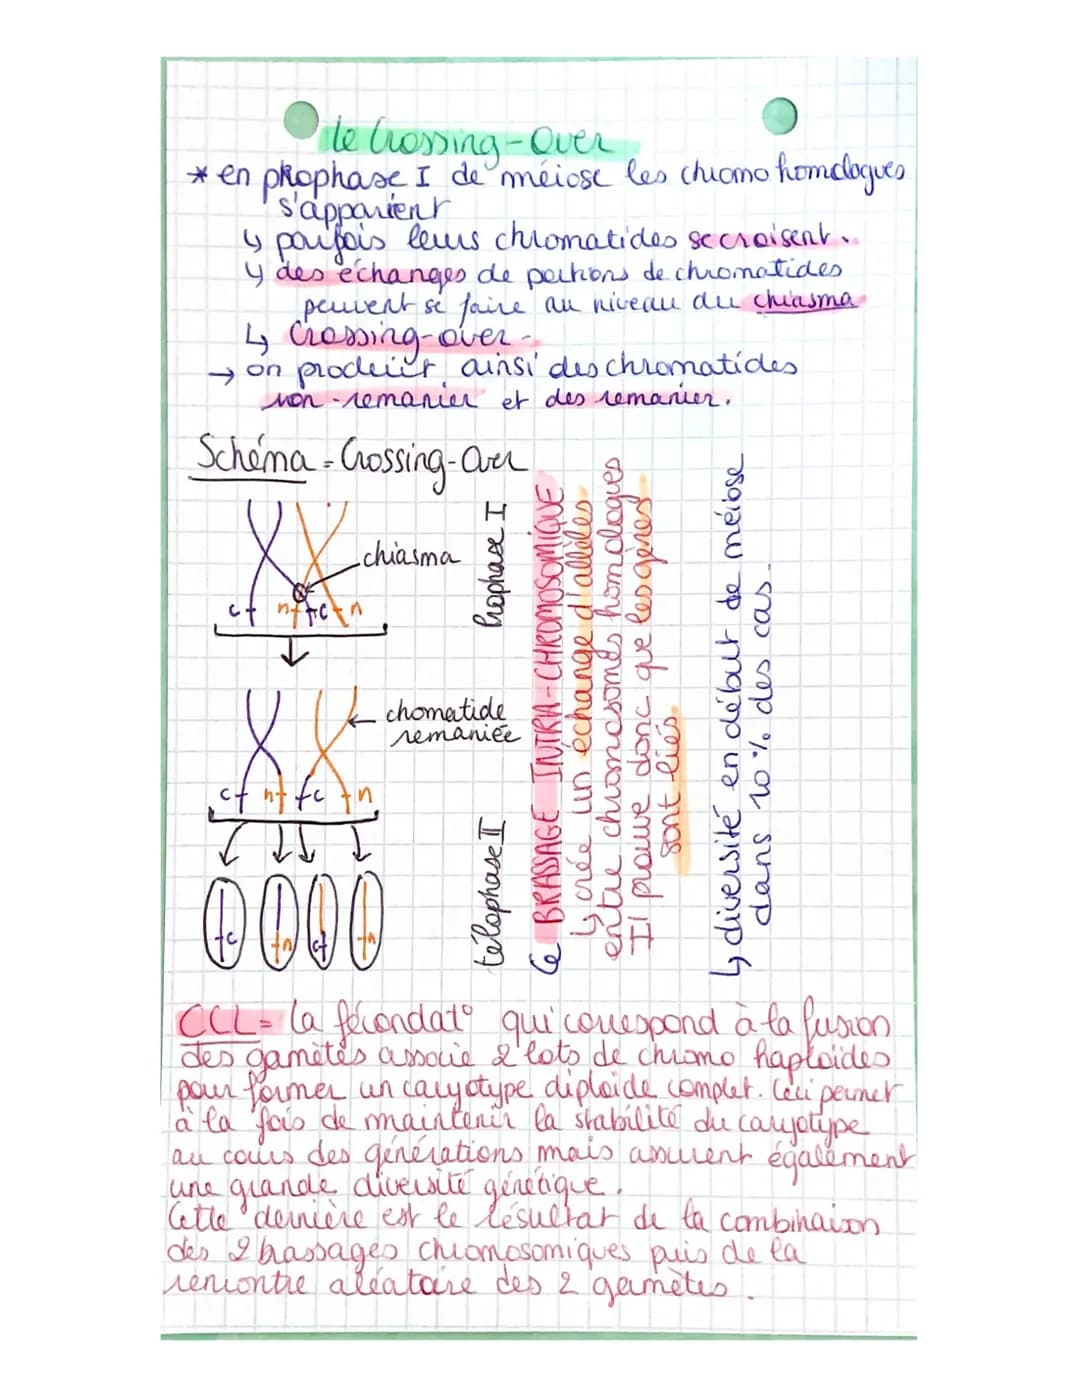 le Crossing-Over
* en prophase I de méiose les chromo homologues
s'apparient
↳ parfois leurs chromatides se croisent.
↳ des échanges de portions de chromatides
peuvent se faire au niveau du chiasma
↳ Crossing-over.
→ on produit ainsi des chromatides
non-remanier et des remanier.
Schéma = Crossing-Over
chiasma
c+ n+ +c + n
Prophase I
chomatide
remaniée
c+ n+ +c +n
+c +n c+ +n
télophase II
Le BRASSAGE INTRA-CHROMOSOMIQUE
↳ crée un échange d'allèles
entre chromosomes homologues
Il prouve donc que les gènes
sont liés.
↳ diversité en début de méiose
dans 10% des cas.
CCL = la fécondat° qui correspond à la fusion
des gamètes associe 2 lots de chromo haploides
pour former un caryotype diploide complet. Ceci permet
à la fois de maintenir la stabilité du caryotype
au cours des générations mais assurent également
une grande diversité génétique.
Cette dernière est le résultat de la combinaison
des 2 brassages chromosomiques puis de la
rencontre aléatoire des 2 gamètes.